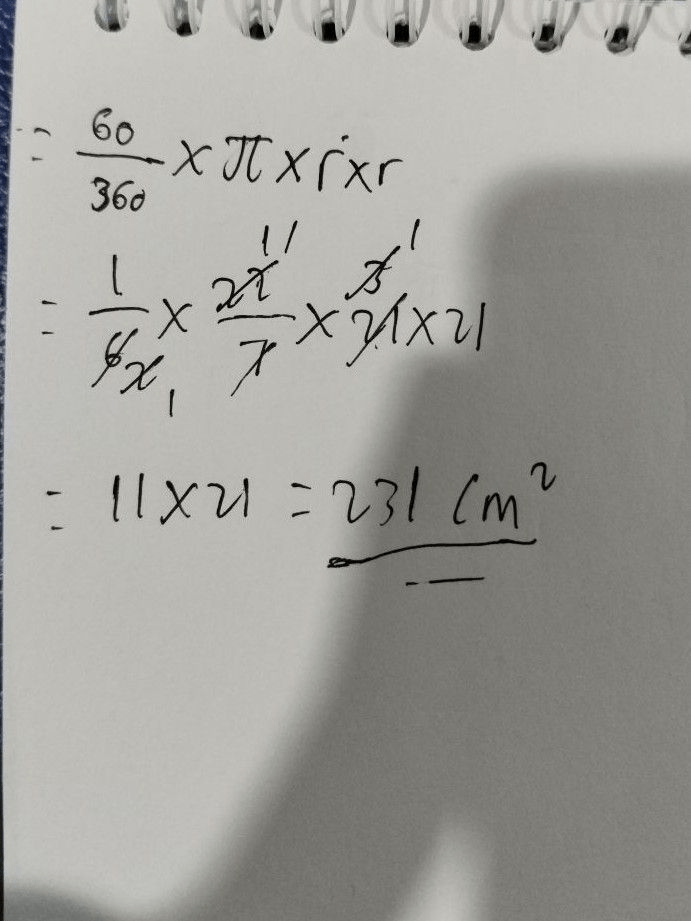 = 60/360 × π × r × r
= 1/6 × 22/7 × 21 × 21
2 1 11 3 1
= 11 × 21 = 231 cm²